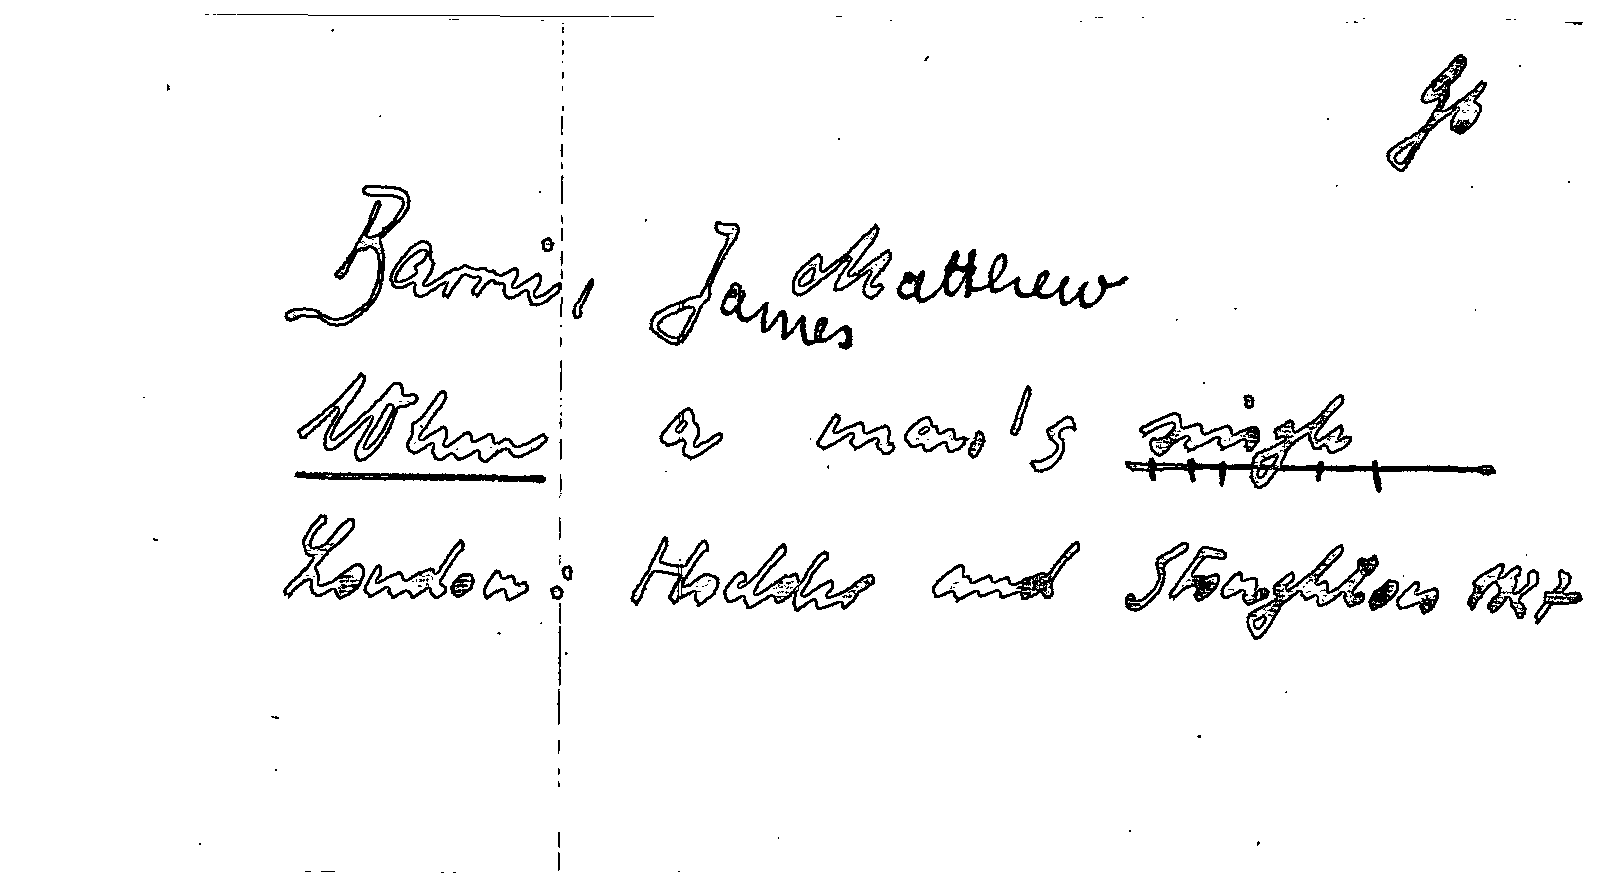 Barrie, James Matthew
When a man's single
London: Hodder and Stoughton